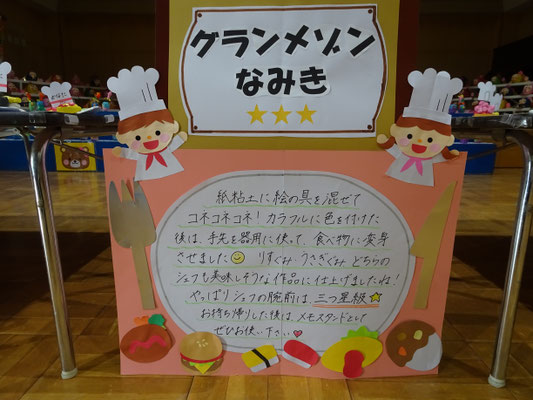 グランメゾン
なみき
紙粘土に絵の具を混ぜて
コネコネコネ！カラフルに色を付けた
後は、手先を器用に使って、食べ物に変身
させました
りすぐみ・うさぎぐみ どちらの
シェフも美味しそうな作品に仕上げましたね！
やっぱりシェフの腕前は、三つ星級
お持ち帰りした後は、メモスタンドとして
ぜひお使い下さい